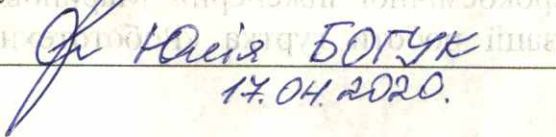 Юлія БОГУК
17.04.2020.